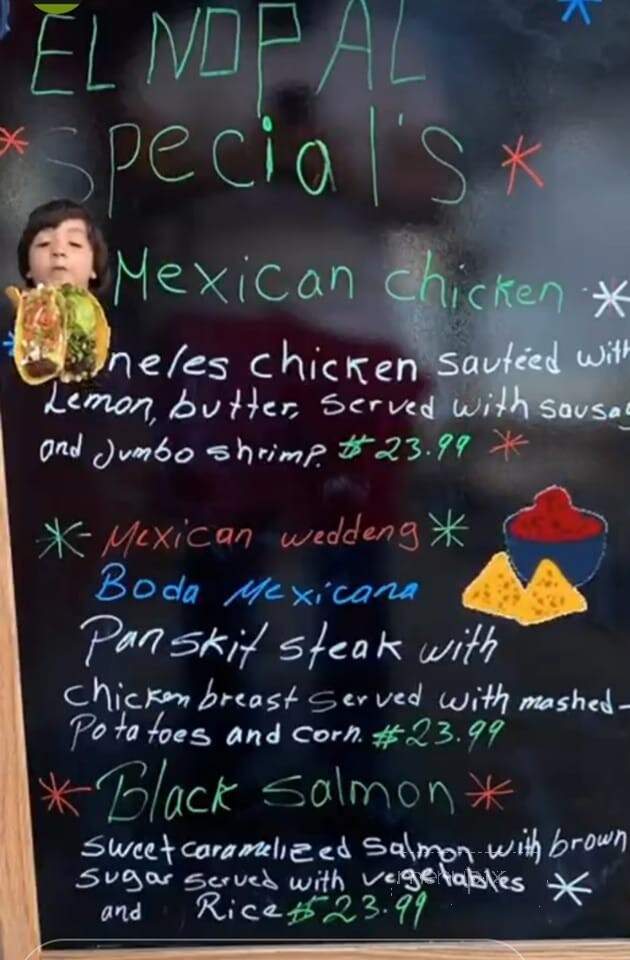 EL NOPAL
Special's
Mexican chicken
neles chicken sautéed with
Lemon, butter, served with sausag
and Jumbo shrimp. $23.99
Mexican weddeng
Boda Mexicana
Pan skit steak with
chicken breast served with mashed-
Potatoes and corn. $23.99
Black salmon
sweet caramelized salmon with brown
sugar served with vegetables
and Rice $23.99